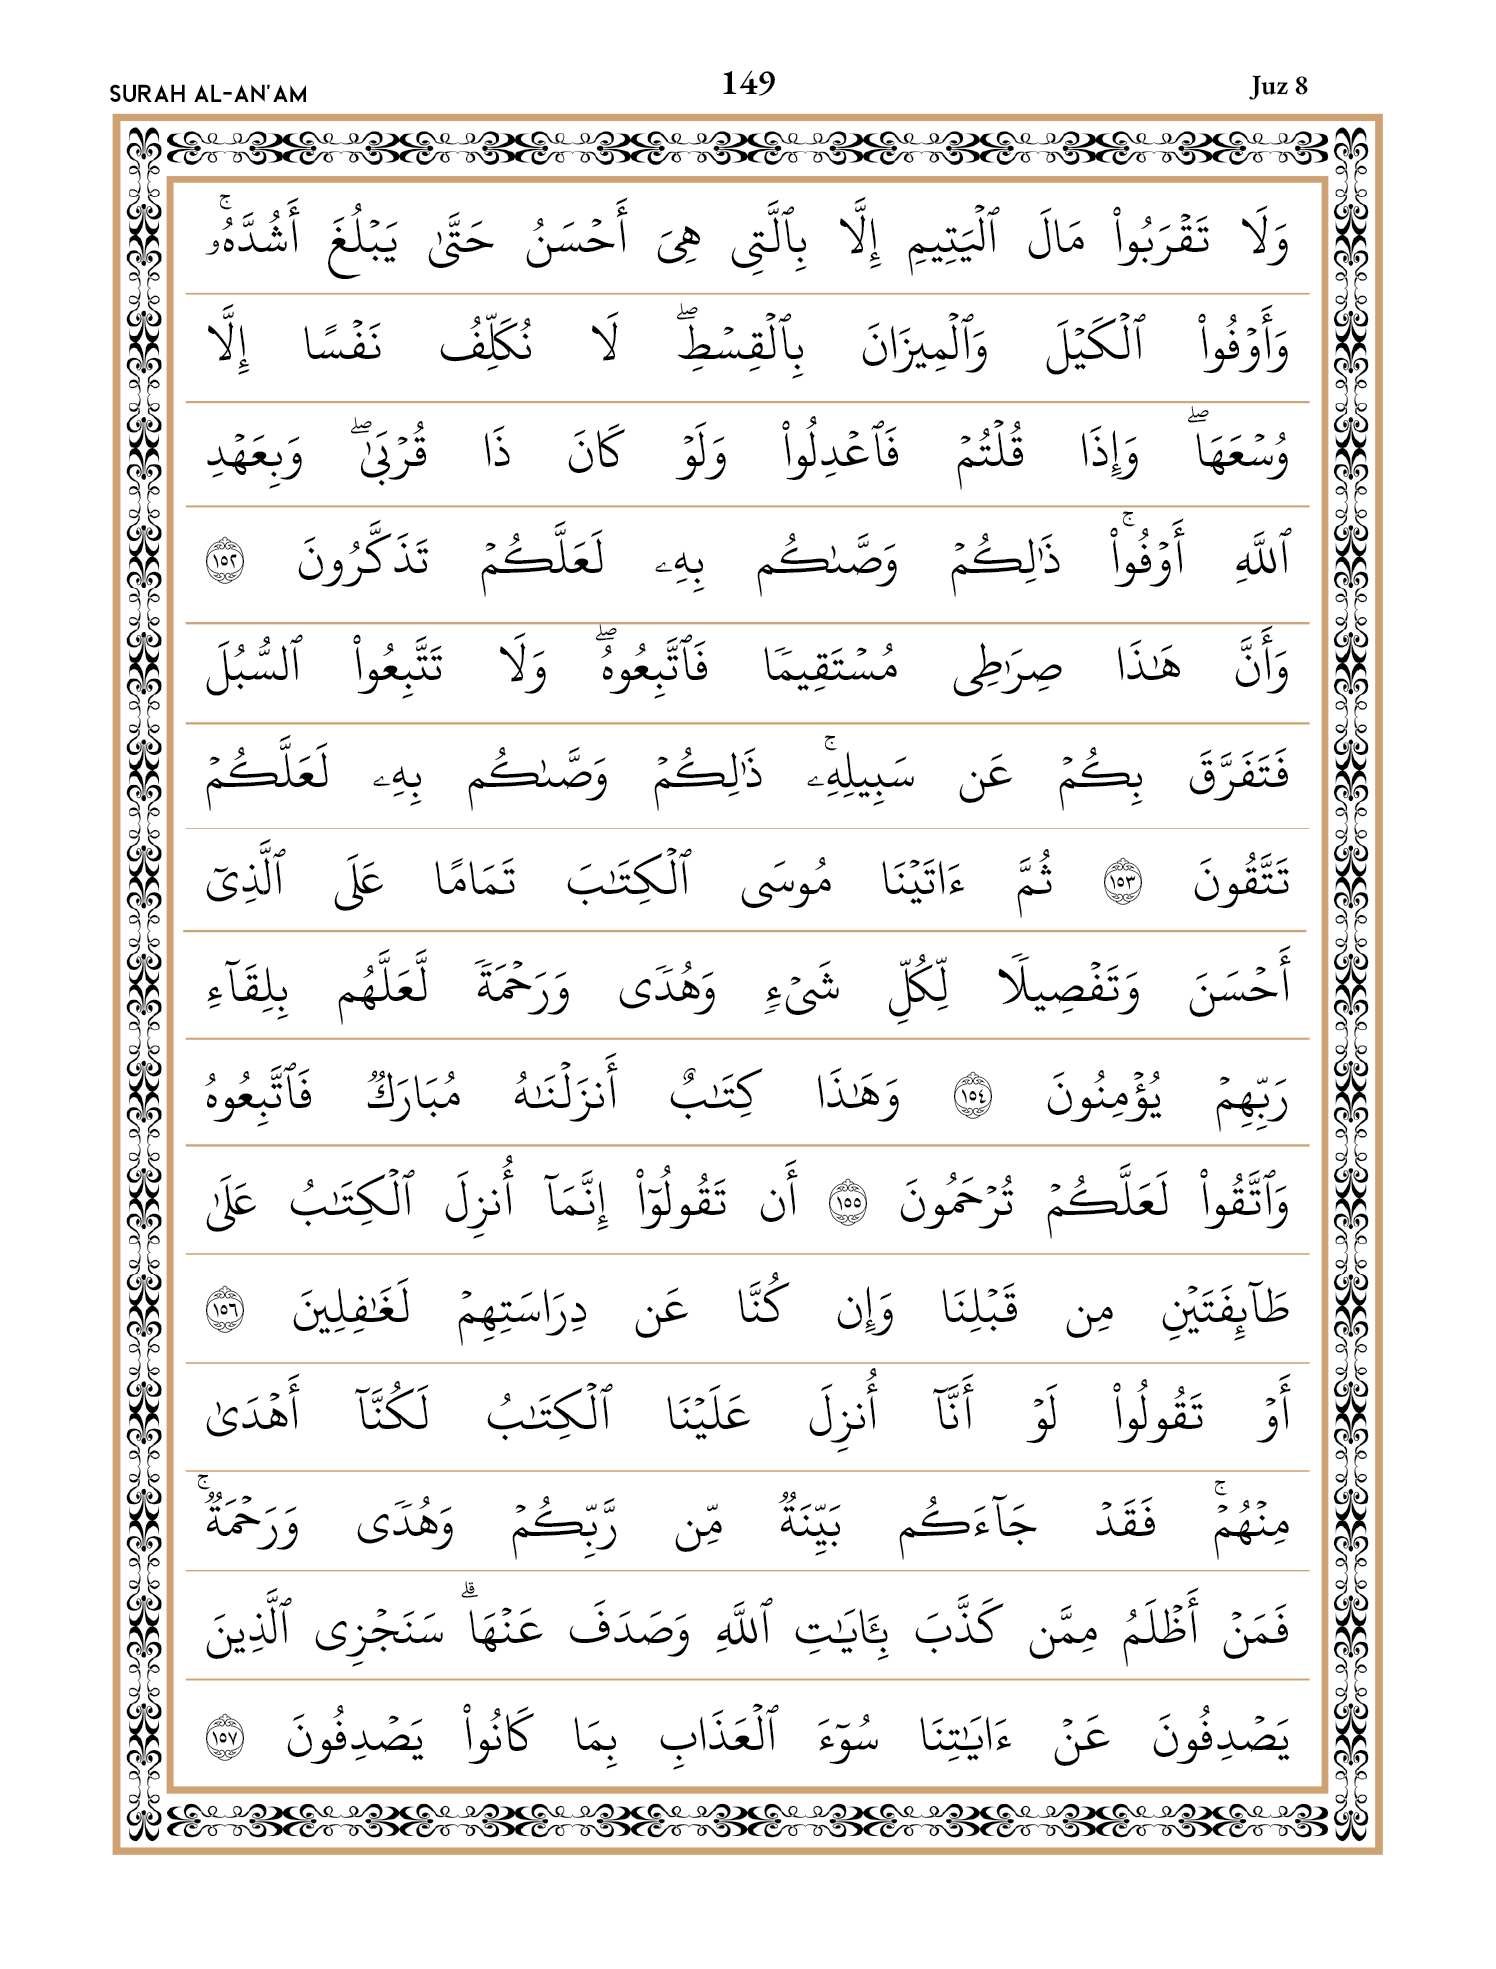 SURAH AL-AN'AM 149 Juz 8
وَلَا تَقۡرَبُواْ مَالَ ٱلۡيَتِيمِ إِلَّا بِٱلَّتِى هِىَ أَحۡسَنُ حَتَّىٰ يَبۡلُغَ أَشُدَّهُۥۚ
وَأَوۡفُواْ ٱلۡكَيۡلَ وَٱلۡمِيزَانَ بِٱلۡقِسۡطِۖ لَا نُكَلِّفُ نَفۡسًا إِلَّا
وُسۡعَهَاۖ وَإِذَا قُلۡتُمۡ فَٱعۡدِلُواْ وَلَوۡ كَانَ ذَا قُرۡبَىٰۖ وَبِعَهۡدِ
ٱللَّهِ أَوۡفُواْۚ ذَٰلِكُمۡ وَصَّىٰكُم بِهِۦ لَعَلَّكُمۡ تَذَكَّرُونَ ١٥٢
وَأَنَّ هَـٰذَا صِرَٰطِى مُسۡتَقِيمٗا فَٱتَّبِعُوهُۖ وَلَا تَتَّبِعُواْ ٱلسُّبُلَ
فَتَفَرَّقَ بِكُمۡ عَن سَبِيلِهِۦۚ ذَٰلِكُمۡ وَصَّىٰكُم بِهِۦ لَعَلَّكُمۡ
تَتَّقُونَ ١٥٣ ثُمَّ ءَاتَيۡنَا مُوسَى ٱلۡكِتَـٰبَ تَمَامًا عَلَى ٱلَّذِىٓ
أَحۡسَنَ وَتَفۡصِيلٗا لِّكُلِّ شَىۡءٖ وَهُدٗى وَرَحۡمَةٗ لَّعَلَّهُم بِلِقَآءِ
رَبِّهِمۡ يُؤۡمِنُونَ ١٥٤ وَهَـٰذَا كِتَـٰبٌ أَنزَلۡنَـٰهُ مُبَارَكٞ فَٱتَّبِعُوهُ
وَٱتَّقُواْ لَعَلَّكُمۡ تُرۡحَمُونَ ١٥٥ أَن تَقُولُوٓاْ إِنَّمَآ أُنزِلَ ٱلۡكِتَـٰبُ عَلَىٰ
طَآئِفَتَيۡنِ مِن قَبۡلِنَا وَإِن كُنَّا عَن دِرَاسَتِهِمۡ لَغَـٰفِلِينَ ١٥٦
أَوۡ تَقُولُواْ لَوۡ أَنَّآ أُنزِلَ عَلَيۡنَا ٱلۡكِتَـٰبُ لَكُنَّآ أَهۡدَىٰ
مِنۡهُمۡۚ فَقَدۡ جَآءَكُم بَيِّنَةٞ مِّن رَّبِّكُمۡ وَهُدٗى وَرَحۡمَةٞۚ
فَمَنۡ أَظۡلَمُ مِمَّن كَذَّبَ بِـَٔايَـٰتِ ٱللَّهِ وَصَدَفَ عَنۡهَاۗ سَنَجۡزِى ٱلَّذِينَ
يَصۡدِفُونَ عَنۡ ءَايَـٰتِنَا سُوٓءَ ٱلۡعَذَابِ بِمَا كَانُواْ يَصۡدِفُونَ ١٥٧